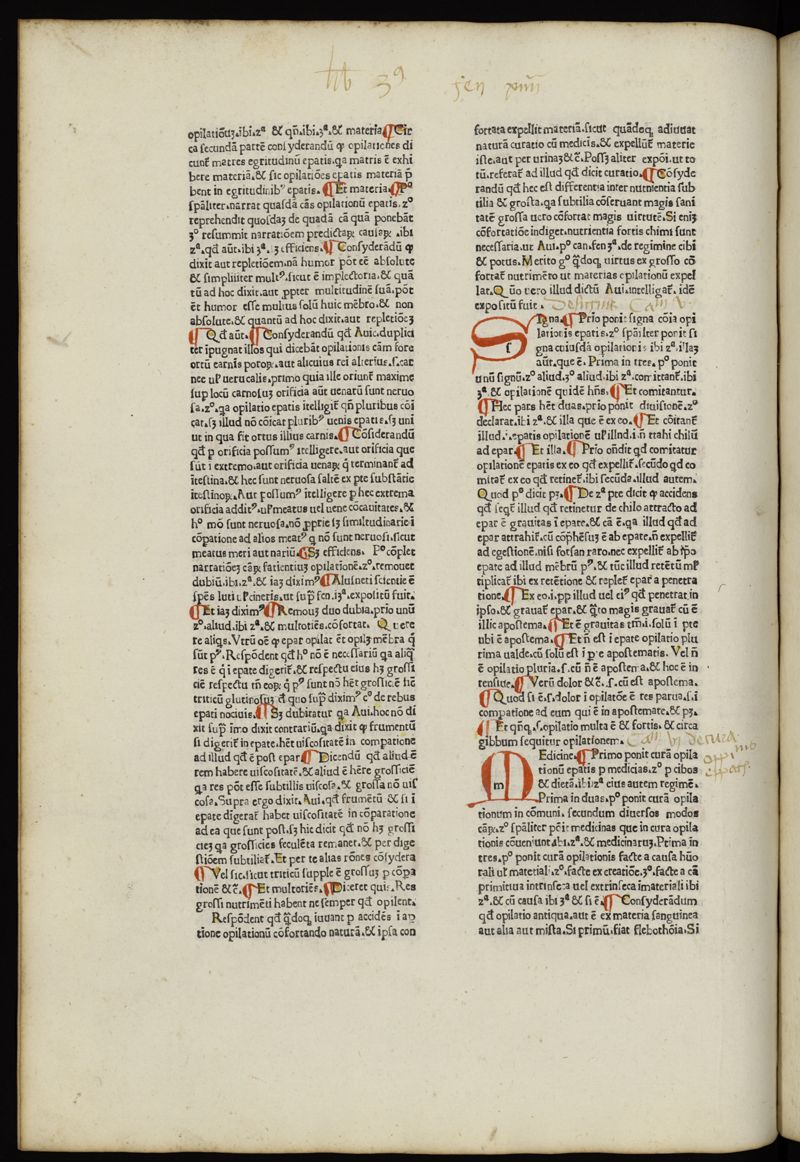 lib 3ª fen xiiii
opilatiōuʒ.ibi.zª &amp; qn̄.ibi.3ª.&amp; materia ¶Cir
ca secundā partē consyderandū ꝙ opilationes di
cunt̄ matres egritudinū epatis.qa matris ē exhi
bere materiā.&amp; sic opilatiōes epatis materiā p̄
bent in egritudinibꝰ epatis. ¶Et materia. ¶Pª
sp̄aliter.narrat quasdā cās opilationū epatis.zº
reprehendit quosdaʒ de quadā cā quā ponebāt
3º resummit narratiōem predictaꝝ causaꝝ .ibi
zª.qd̄ aūt.ibi 3ª.ʒ efficiens. ¶Consyderandū ꝙ
dixit aut repletiōem.nā humor pōt eē absolute
&amp; simpliciter multꝰ.sicut ē implectoria.&amp; quā
tū ad hoc dixit.aut ꝓpter multitudinē suā.pōt
ēt humor esse multus solū huic mēbro.&amp; non
absolute.&amp; quantū ad hoc dixit.aut repletiōeʒ
¶Qd̄ aūt. ¶Consyderandū qd̄ Auic.duplici
ter ipugnat illos qui dicebāt opilationis cām fore
ortū carnis poroꝝ.aut alicuius rei alterius.s.car
nee ul̓ uerucalis.primo quia ille oriunt̄ maxime
sup locū carnosuʒ orificia aūt uenarū sunt neruo
sa.zº.qa opilatio epatis itelligit̄ qn̄ pluribus cōi
cat̄.sʒ illud nō cōicat pluribꝰ uenis epatis.sʒ uni
ut in qua fit ortus illius carnis. ¶Cōsiderandū
qd̄ p orificia possumꝰ itelligere.aut orificia que
sūt i extremo.aut orificia uenaꝝ ꝗ terminant̄ ad
itestina.&amp; hec sunt neruosa saltē ex pte substātie
itestinoꝝ.Aut possumꝰ itelligere p hec extrema
orificia additꝰ.ul̓ meatus uel uene cōcauitates.&amp;
hº mō sunt neruosa.nō ꝓprie sʒ similitudinarie i
cōpatione ad alios meatꝰ ꝗ nō sunt neruosi.sicut
meatus meri aut nariū. ¶Sʒ efficiens. Pº cōplet
narratiōeʒ cāꝝ facientiuʒ opilationē.zº.remouet
dubiū.ibi.zª.&amp; iaʒ diximꝰ ¶Alusneti scientie ē
sp̄es luti ul̓ cineris.ut sup̄ fen.iª.expositū fuit.
¶Et iaʒ diximꝰ ¶Remouʒ duo dubia.prio unū
zº.aliud.ibi zª.&amp; multotiēs.cōfortat. Quere
re aliqs.Vtrū oē ꝙ epar opilat ēt opilʒ mēbra ꝗ
sūt pꝰ.Respōdent qd̄ hº nō ē necessariū qa aliꝗ
res ē ꝗ i epate digerit̄.&amp; respectu eius hʒ grossi
ciē respectu tn̄ eoꝝ ꝗ pꝰ sunt nō hēt grossiciē sic
triticū glutinosuʒ đ quo sup̄ diximꝰ cº de rebus
epati nociuis. ¶Sʒ dubitatur qa Aui.hoc nō di
xit sup̄ imo dixit contrariū.qa dixit ꝙ frumentū
si digerit̄ in epate.hēt uiscositatē in compatione
ad illud qd̄ ē post epar ¶Dicendū qd̄ aliud ē
rem habere uiscositatē.&amp; aliud ē hēre grossiciē
qa res pōt esse subtillis uiscosa.&amp; grossa nō uis
cosa.Supra ergo dixit.Aui.qd̄ frumētū &amp; si i
epate digerat̄ habet uiscositatē in cōparatione
ad ea que sunt post.sʒ hic dicit qd̄ nō hʒ grossi
cieʒ qa grossicies feculēta remanet.&amp; per dige
stiōem subtiliat̄.Et per te alias rōnes cōsydera
¶Vel sic.sicut triticū supple ē grossuʒ p cōpa
tionē &amp;c̄. ¶Et multotiēs. ¶Diceret quis.Res
grossi nutrimēti habent ne semper qd̄ opilent.
Respōdent qd̄ ꝗ̄doꝗ iuuant p accidēs i ap
tione opilationū cōfortando naturā.&amp; ipsa con
fortata expellit materiā.sicut quādoꝗ adiuuat
naturā curatio cū medicīs.&amp; expellūt̄ materie
iste.aut per urinaʒ&amp;c̄.Possʒ aliter expōi.ut to
tū.referat̄ ad illud qd̄ dicit curatio. ¶Cōsyde
randū qd̄ hec est differentia inter nutrientia sub
tilia &amp; grossa.qa subtilia cōseruant magis sani
tatē grossa uero cōfortāt magis uirtutē.Si eniʒ
cōfortatiōe indiget.nutrientia fortis chimi sunt
necessaria.ut Aui.pº can.fen 3ª.de regimine cibi
&amp; potus.Merito gº ꝗ̄doꝗ uirtus ex grosso cō
fortat̄ nutrimēto ut materias opilationū expel
lat.Quō uero illud dictū Aui.intelligat̄.idē
expositū fuit. De signis Cam V.
SIgna. ¶Prio ponit signa cōia opi
lationis epatis.zº sp̄aliter ponit si
gna cuiusdā opilationis ibi zª.illaʒ
aūt.que ē.Prima in tres.pº ponit
unū signū.zº aliud.3º aliud.ibi zª.comitant̄.ibi
3ª.&amp; opilationē quidē hn̄s. ¶Et comitantur.
¶Hec pars hēt duas.prio ponit diuisionē.zº
declarat.ibi zª.&amp; illa que ē ex eo. ¶Et cōitant̄
illud.s.epatis opilationē ul̓ illud.i.n̄ trahi chilū
ad epar. ¶Et illa. ¶Prio ondit qd comitatur
opilationē epatis ex eo qd expellit̄.secūdo qd co
mitat̄ ex eo qd retinet̄.ibi secūda.illud autem.
Quod pº dicit pʒ. ¶De zª pte dicit ꝙ accidens
qd̄ seqt̄ illud qd̄ retinetur de chilo attracto ad
epar ē grauitas i epate.&amp; cā ē.qa illud qd̄ ad
epar attrahit̄.cū cōp̄hēsuʒ ē ab epate.n̄ expellit̄
ad egestionē.nisi forsan raro.nec expellit̄ ab ipo
epate ad illud mēbrū pꝰ.&amp; tūc illud retētū ml̓
tiplicat̄ ibi ex retētione &amp; replet̄ epar a penetra
tione. ¶Ex eo.i.pp illud uel eiꝰ qd̄ penetrat̄ in
ipso.&amp; grauat̄ epar.&amp; ꝗ̄to magis grauat̄ cū ē
illic apostema. ¶Et ē grauitas tm̄.i.solū i pte
ubi ē apostema. ¶Et n̄ est i epate opilatio plu
rima ualde.cū solū est i pte apostematis.Vel n̄
ē opilatio pluria.s.cū n̄ ē apostema.&amp; hoc ē in
tensiue. ¶Verū dolor &amp; c̄.s.cū est apostema.
¶Quod si ē.s.dolor i opilatōe ē res parua.s.i
compatione ad eum qui ē in apostemate.&amp; pʒ.
¶Et qn̄ꝗ.s.opilatio multa ē &amp; fortis.&amp; circa
gibbum sequitur opilationem. Cam VI de cura oppinio epatis.
MEdicine. ¶Primo ponit curā opila
tionū epatis p medicias.zº p cibos
&amp; dietā.ibi zª eius autem regimē.
Prima in duas.pº ponit curā opila
tionum in cōmuni. secundum diuersos modos
cāꝝ.zº sp̄aliter pōit medicinas que in cura opila
tionis cōueniunt.ibi.zª.&amp; medicinaruʒ.Prima in
tres.pº ponit curā opilationis facte a causa hūo
rali ut materiali.zº.facte ex creatiōe.3º.facte a cā
primitiua intrinseca uel extrinseca imateriali ibi
zª.&amp; cū causa ibi 3ª &amp; si ē. ¶Consyderādum
qd̄ opilatio antiqua.aut ē ex materia sanguinea
aut alia aut mista.Si primū.fiat flebothōia.Si